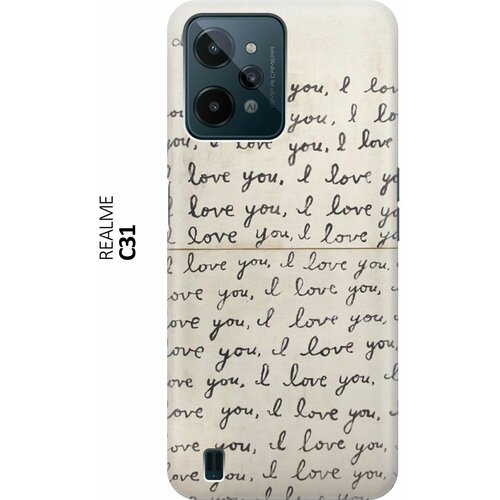 REALME
C31
12MP AI CAMERA
AI
you, I lov
you, I lo
you, I love you, I love
love you, I love yo
love you, I love yo
I love you, I love yo
I love you, I love you,
ove you, I love you,
ove you, I love you,
ove you, I love you,
ove you, I love you,
ove you, I love you,
ove you, I love you,
ove you, I love you,
I love you